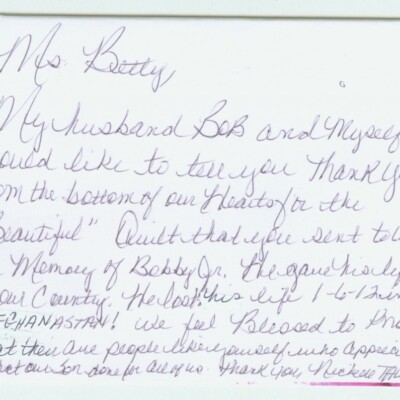 Ms. Betty,
My husband Bob and Myself
ould like to tell you Thank Y
om the bottom of our Hearts for the
Beautiful" Quilt that you sent to
Memory of Bobby Jr. He gave his
our Country. He lost his life 1-6-12 in
FGHANASTAN! We feel Blessed to
at there are people like yourself who apprecia
our son done for all of us. Thank You